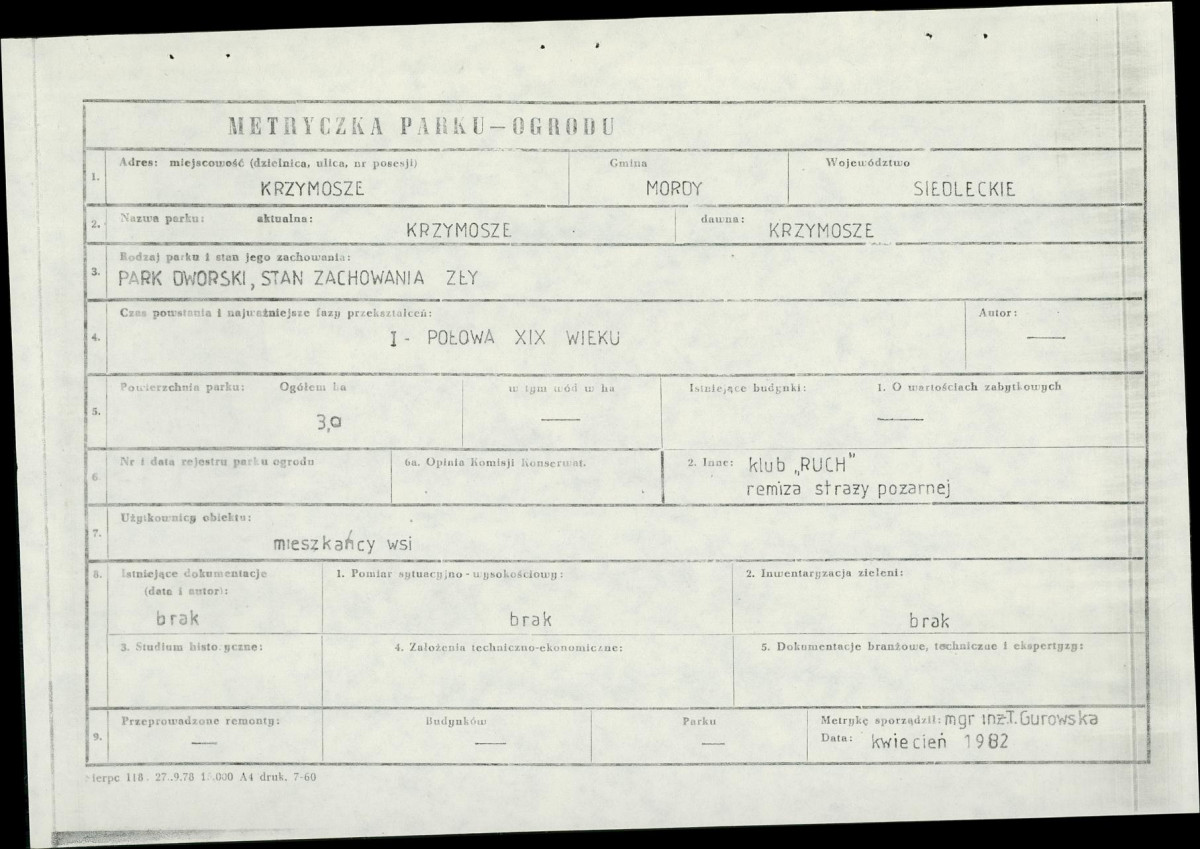 METRYCZKA PARKU-OGRODU
1. Adres: miejscowość (dzielnica, ulica, nr posesji) Gmina Województwo
KRZYMOSZE MORDY SIEDLECKIE
2. Nazwa parku: aktualna: dawna:
KRZYMOSZE KRZYMOSZE
3. Rodzaj parku i stan jego zachowania:
PARK DWORSKI, STAN ZACHOWANIA ZŁY
4. Czas powstania i najważniejsze fazy przekształceń: Autor:
I - POŁOWA XIX WIEKU —
5. Powierzchnia parku: Ogółem ha w tym wód w ha Istniejące budynki: 1. O wartościach zabytkowych
3,0 — —
6 Nr i data rejestru parku ogrodu 6a. Opinia Komisji Konserwat. 2. Inne: klub „RUCH"
remiza straży pozarnej
7. Użytkownicy obiektu:
mieszkańcy wsi
8. Istniejące dokumentacje 1. Pomiar sytuacyjno-wysokościowy: 2. Inwentaryzacja zieleni:
(data i autor):
brak brak brak
3. Studium histo.yczne: 4. Założenia techniczno-ekonomiczne: 5. Dokumentacje branżowe, techniczne i ekspertyzy:
9. Przeprowadzone remonty: Budynków Parku Metrykę sporządził: mgr inż. T. Gurowska
— — — Data: kwiecień 1982
A4 druk. 7-60